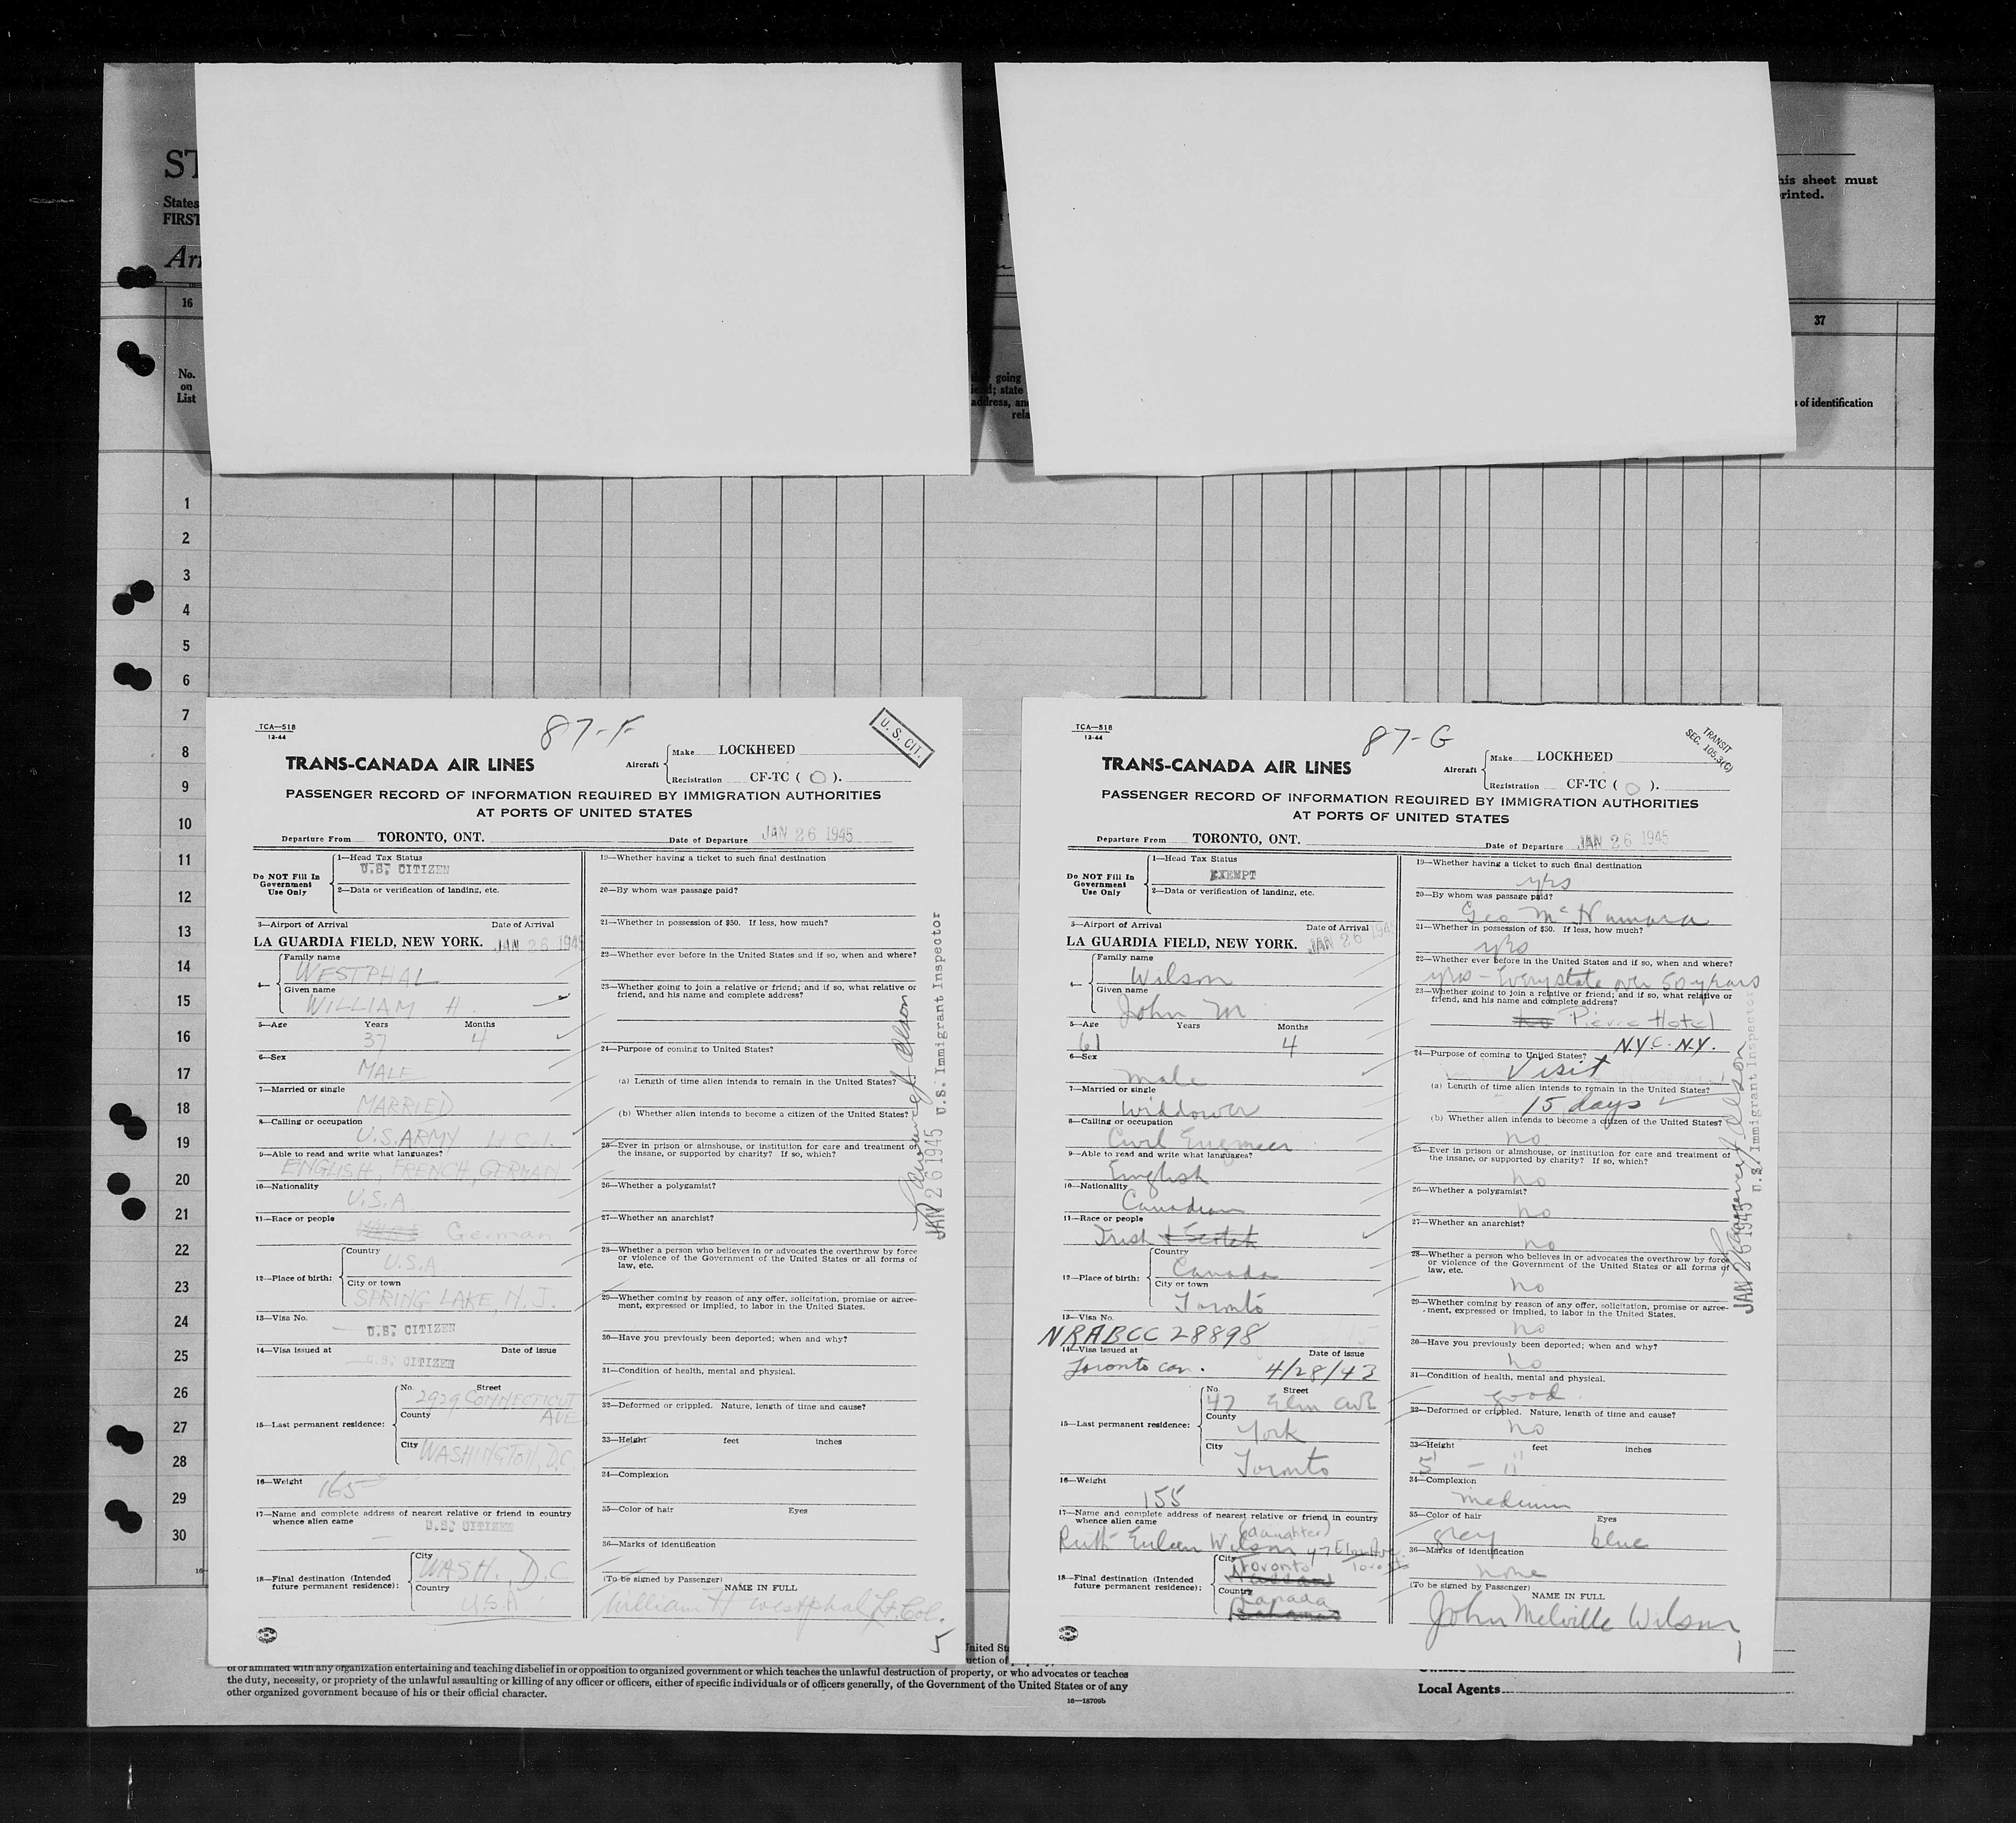 ST
States
FIRST
Arr
16
No.
on
List
going
state
address, and
rela
his sheet must
rinted.
37
s of identification
1
2
3
4
5
6
7
8
9
10
11
12
13
14
15
16
17
18
19
20
21
22
23
24
25
26
27
28
29
30
TCA—518
12-44
87-F
U. S. CIT.
TRANS-CANADA AIR LINES
Aircraft
Make LOCKHEED
Registration CF-TC ( O ).
PASSENGER RECORD OF INFORMATION REQUIRED BY IMMIGRATION AUTHORITIES
AT PORTS OF UNITED STATES
Departure From TORONTO, ONT. Date of Departure JAN 26 1945
Do NOT Fill In
Government
Use Only
1—Head Tax Status
U.S. CITIZEN
2—Data or verification of landing, etc.
3—Airport of Arrival Date of Arrival
LA GUARDIA FIELD, NEW YORK. JAN 26 1945
4—
Family name
WESTPHAL
Given name
WILLIAM H.
5—Age Years Months
37 4
6—Sex
MALE
7—Married or single
MARRIED
8—Calling or occupation
U.S. ARMY Lt Col.
9—Able to read and write what languages?
ENGLISH, FRENCH, GERMAN
10—Nationality
U.S.A
11—Race or people
German
12—Place of birth:
Country
U.S.A
City or town
SPRING LAKE, N.J.
13—Visa No.
U.S. CITIZEN
14—Visa issued at Date of issue
U.S. CITIZEN
15—Last permanent residence:
No. Street
2929 CONNECTICUT
County AVE
City WASHINGTON, D.C
16—Weight 165
17—Name and complete address of nearest relative or friend in country
whence alien came
U.S. CITIZEN
18—Final destination (Intended
future permanent residence):
City
WASH., D.C
Country
USA
19—Whether having a ticket to such final destination
20—By whom was passage paid?
21—Whether in possession of $50. If less, how much?
22—Whether ever before in the United States and if so, when and where?
23—Whether going to join a relative or friend; and if so, what relative or
friend, and his name and complete address?
24—Purpose of coming to United States?
(a) Length of time alien intends to remain in the United States?
(b) Whether alien intends to become a citizen of the United States?
25—Ever in prison or almshouse, or institution for care and treatment of
the insane, or supported by charity? If so, which?
26—Whether a polygamist?
27—Whether an anarchist?
28—Whether a person who believes in or advocates the overthrow by force
or violence of the Government of the United States or all forms of
law, etc.
29—Whether coming by reason of any offer, solicitation, promise or agree-
ment, expressed or implied, to labor in the United States.
30—Have you previously been deported; when and why?
31—Condition of health, mental and physical.
32—Deformed or crippled. Nature, length of time and cause?
33—Height feet inches
34—Complexion
35—Color of hair Eyes
36—Marks of identification
(To be signed by Passenger)
NAME IN FULL
William H Westphal Lt. Col.
5
JAN 26 1945 U.S. Immigrant Inspector
TCA—518
12-44
87-G
TRANSIT
SEC. 105.3(C)
TRANS-CANADA AIR LINES
Aircraft
Make LOCKHEED
Registration CF-TC ( O ).
PASSENGER RECORD OF INFORMATION REQUIRED BY IMMIGRATION AUTHORITIES
AT PORTS OF UNITED STATES
Departure From TORONTO, ONT. Date of Departure JAN 26 1945
Do NOT Fill In
Government
Use Only
1—Head Tax Status
EXEMPT
2—Data or verification of landing, etc.
3—Airport of Arrival Date of Arrival
LA GUARDIA FIELD, NEW YORK. JAN 26 1945
4—
Family name
Wilson
Given name
John M
5—Age Years Months
61 4
6—Sex
male
7—Married or single
Widdower
8—Calling or occupation
Civil Engineer
9—Able to read and write what languages?
English
10—Nationality
Canadian
11—Race or people
Irish & Scotch
12—Place of birth:
Country
Canada
City or town
Toronto
13—Visa No.
NRABCC 28898
14—Visa issued at Date of issue
Toronto Can. 4/28/43
15—Last permanent residence:
No. Street
47 Elm ave
County
York
City
Toronto
16—Weight
155
17—Name and complete address of nearest relative or friend in country
whence alien came
(daughter)
Ruth Eileen Wilson 47 Elm Ave.
Toronto
18—Final destination (Intended
future permanent residence):
City
Toronto
Nassau
Country
Canada
Bahamas
19—Whether having a ticket to such final destination
yes
20—By whom was passage paid?
Geo McNamara
21—Whether in possession of $50. If less, how much?
yes
22—Whether ever before in the United States and if so, when and where?
yes - Every state over 50 years
23—Whether going to join a relative or friend; and if so, what relative or
friend, and his name and complete address?
no Pierre Hotel
N.Y.C. N.Y.
24—Purpose of coming to United States?
Visit
(a) Length of time alien intends to remain in the United States?
15 days
(b) Whether alien intends to become a citizen of the United States?
no
25—Ever in prison or almshouse, or institution for care and treatment of
the insane, or supported by charity? If so, which?
no
26—Whether a polygamist?
no
27—Whether an anarchist?
no
28—Whether a person who believes in or advocates the overthrow by force
or violence of the Government of the United States or all forms of
law, etc.
no
29—Whether coming by reason of any offer, solicitation, promise or agree-
ment, expressed or implied, to labor in the United States.
no
30—Have you previously been deported; when and why?
no
31—Condition of health, mental and physical.
good
32—Deformed or crippled. Nature, length of time and cause?
no
33—Height feet inches
5' - 11"
34—Complexion
medium
35—Color of hair Eyes
grey blue
36—Marks of identification
none
(To be signed by Passenger)
NAME IN FULL
John Melville Wilson
1
JAN 26 1945 U.S. Immigrant Inspector
United St
uction of
or affiliated with any organization entertaining and teaching disbelief in or opposition to organized government or which teaches the unlawful destruction of property, or who advocates or teaches
the duty, necessity, or propriety of the unlawful assaulting or killing of any officer or officers, either of specific individuals or of officers generally, of the Government of the United States or of any
other organized government because of his or their official character.
16—18709b
Local Agents